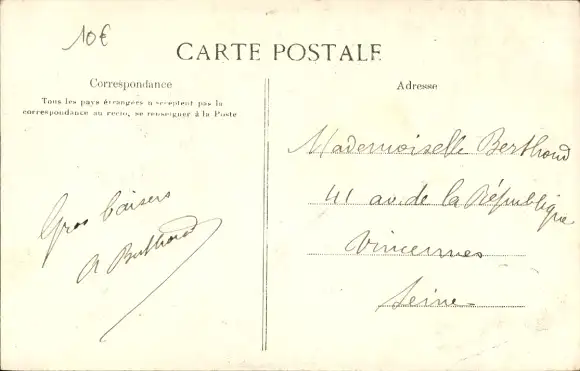 10€
CARTE POSTALE
Correspondance
Tous les pays étrangers n'acceptent pas la
correspondance au recto, se renseigner à la Poste
Gros baisers
A Berthoud
Adresse
Mademoiselle Berthoud
41 av. de la République
Vincennes
Seine